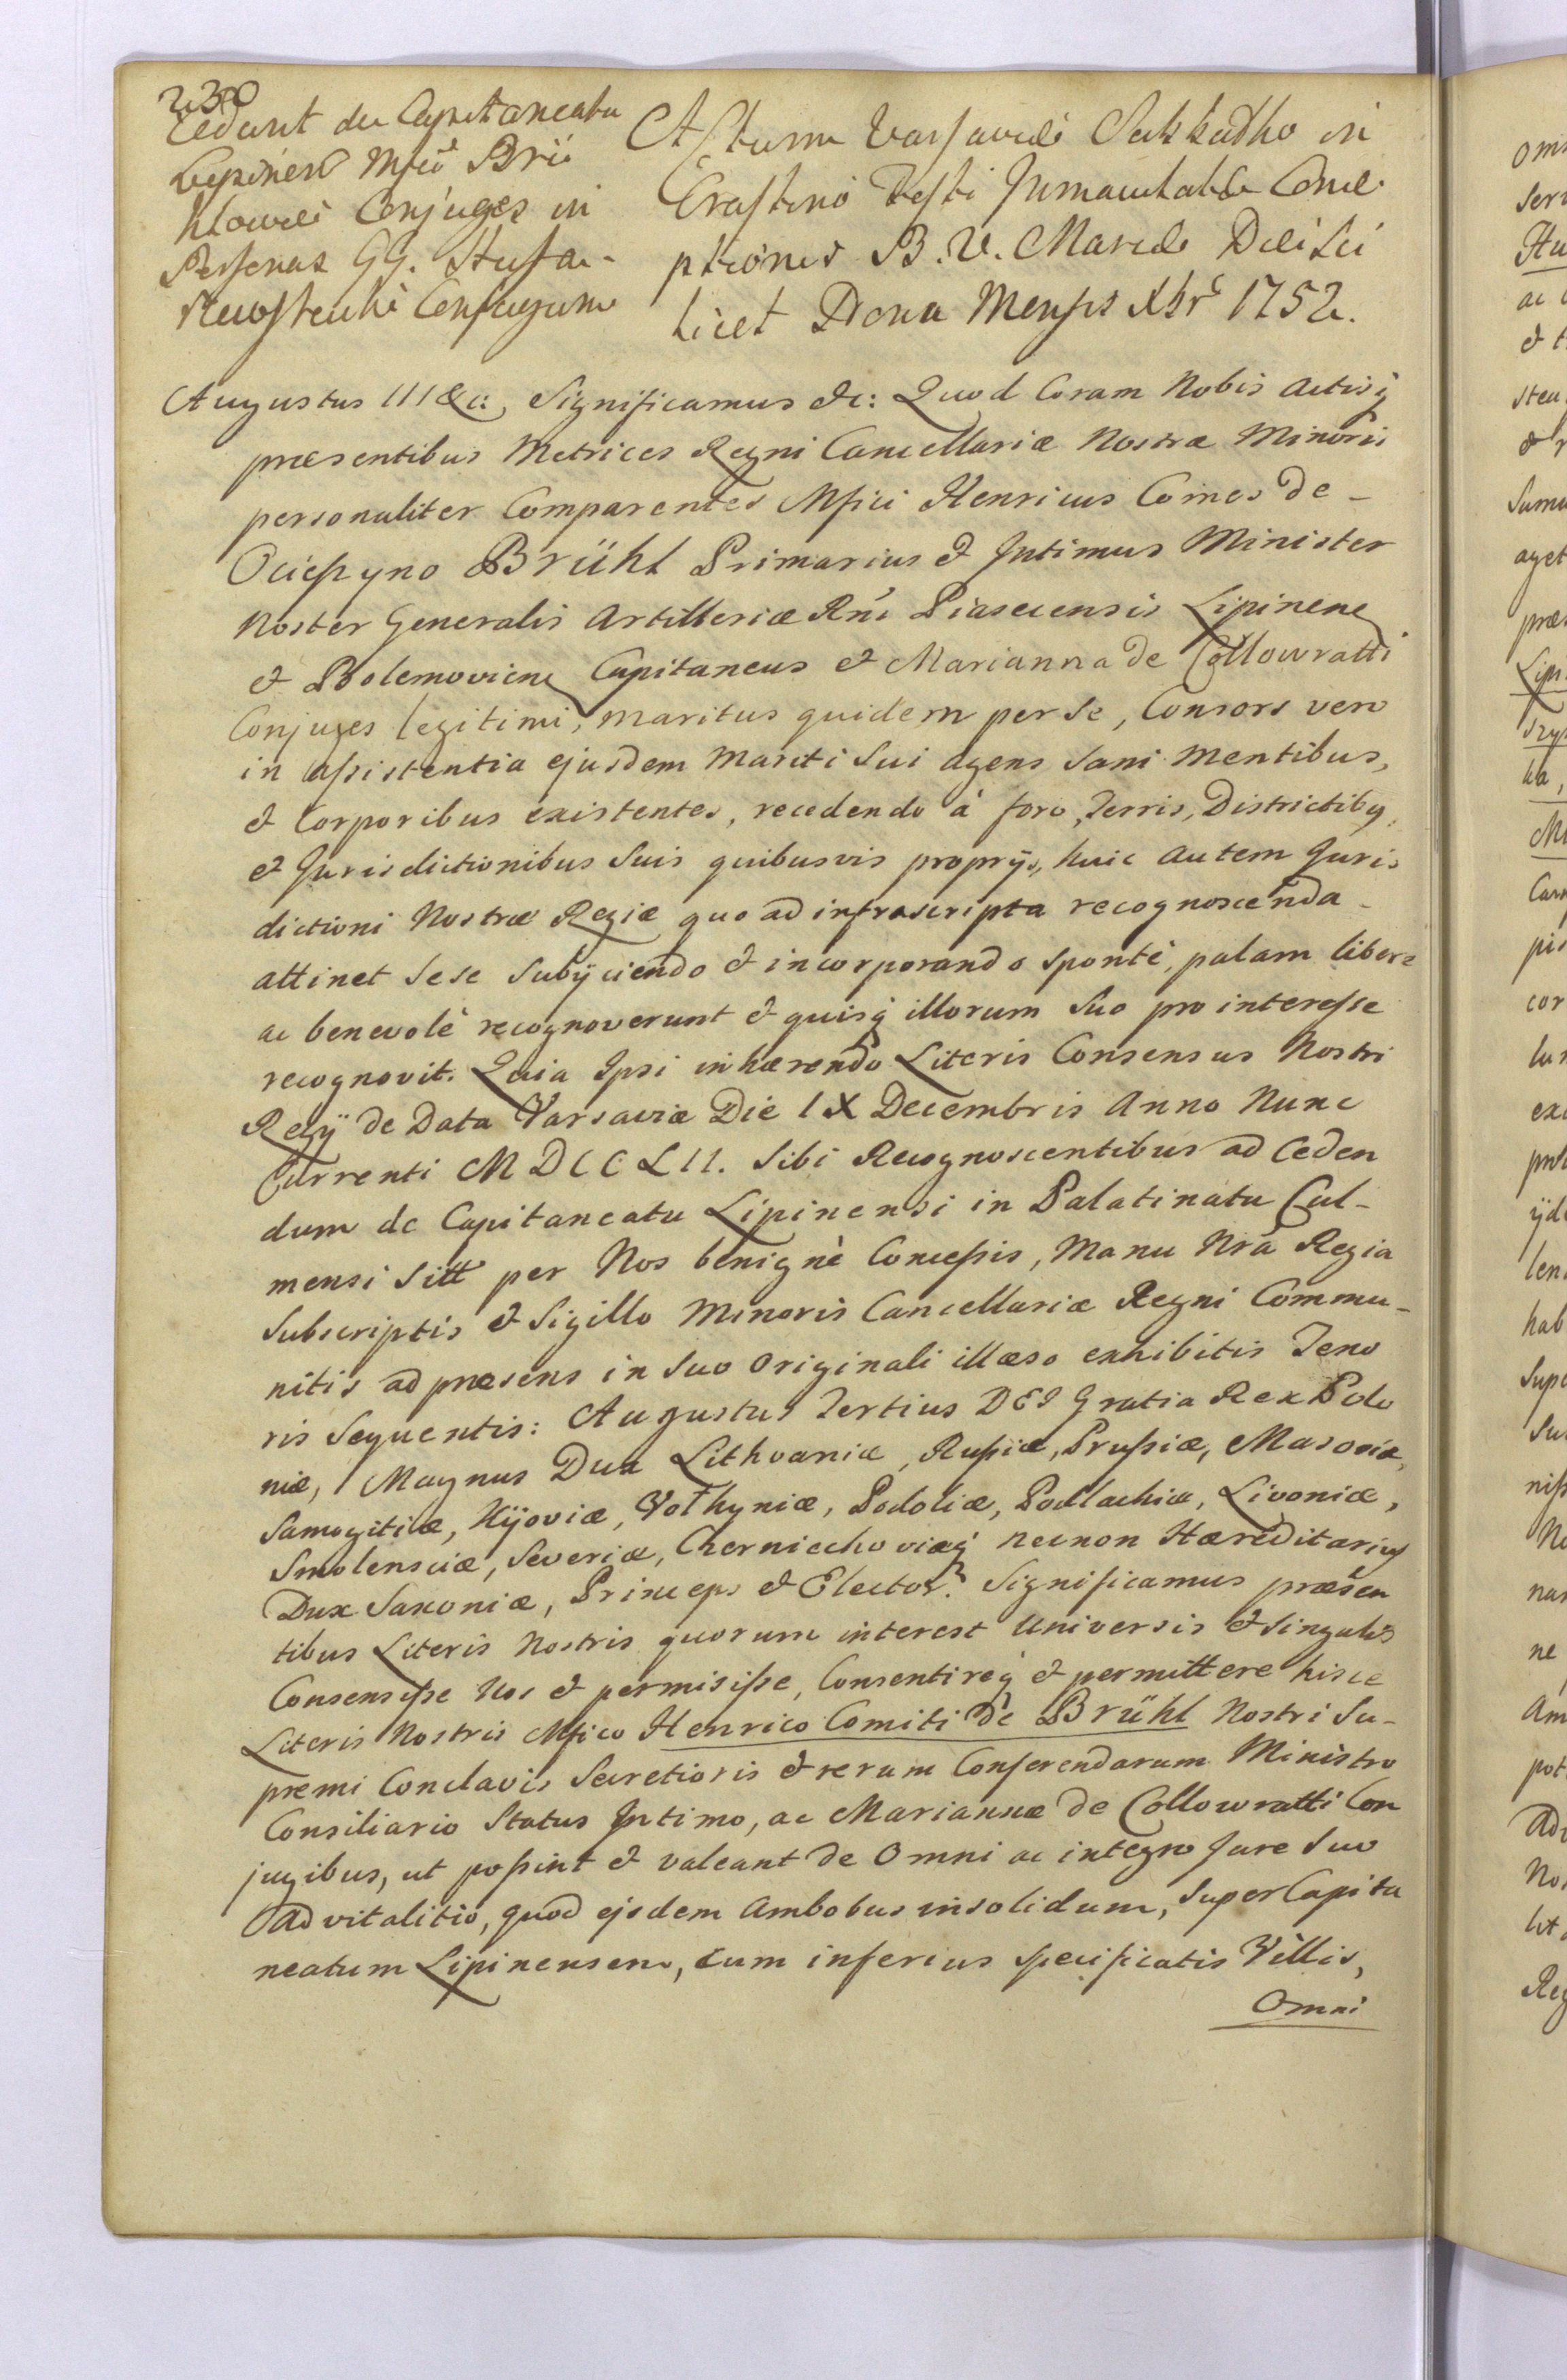 230
Cedunt de Capitaneatu
Lipinen Mfci Brü
hlowie Conjuges in
Personas GG.
Conjugum
Actum Varsaviæ Sabbatho in
Crastino Festi Immaculatæ Conce
ptionis B. V. Mariæ Die sci
licet Nona Mensis Xbr 1752.
Augustus III &c: Significamus &c: Quod Coram Nobis Actisq
præsentibus Metrices Regni Cancellariæ Nostræ Minoris
personaliter Comparentes Mfici Henricus Comes de -
Ocieszyno Brühl Primarius & Intimus Minister
Noster Generalis Artilleriæ Rni Piasecensis Lipinen
& Bolemovien Capitaneus & Marianna de Collowratti
Conjuges legitimi, maritus quidem per se, Consors vero
in assistentia ejusdem Mariti Sui agens sani Mentibus,
& Corporibus existentes, recedendo à foro, Terris, Districtibq,
et Jurisdictionibus Suis quibusvis proprijs, huic autem Juris
dictioni Nostræ Regiæ quo ad infrascripta recognoscenda -
attinet sese Subijciendo & incorporando sponté, palam libere
ac benevolè recognoverunt & quisq illorum Suo pro interesse
recognovit. Quia Ipsi inhærendo Literis Consensus Nostri
Regij de Data Varsaviæ Die IX Decembris Anno Nunc
Currenti MDCCLII. Sibi Recognoscentibus ad Ceden
dum de Capitaneatu Lipinensi in Palatinatu Cul-
mensi Sitt per Nos benignè Concessis, Manu Nrâ Regia
Subscriptis & Sigillo Minoris Cancellariæ Regni Commu-
nitis ad præsens in Suo Originali illæso exhibitis Teno
ris Sequentis: Augustus Tertius DEI Gratia Rex Polo
niæ, Magnus Dux Lithvaniæ, Russiæ, Prussiæ, Masoviæ,
Samogitiæ, Kijoviæ, Volhyniæ, Podoliæ, Podlachiæ, Livoniæ,
Smolensciæ, Severiæ, Czerniechoviæq necnon Hæreditarius
Dux Saxoniæ, Princeps & Elector. Significamus præsen
tibus Literis Nostris quorum interest Universis & Singulis
Consensisse Nos & permisisse, Consentireq & permittere hisce
Literis Nostris Mfico Henrico Comiti de Brühl Nostri Su-
premi Conclavis Secretioris & rerum Conferendarum Ministro
Consiliario Status Intimo, ac Mariannæ de Collowratti Con
jugibus, ut possint & valeant de Omni ac integro Jure Suo
Advitalitio, quod ejsdem Ambobus insolidum, Super Capita
neatum Lipinensem, cum inferius specificatis Villis,
Omni